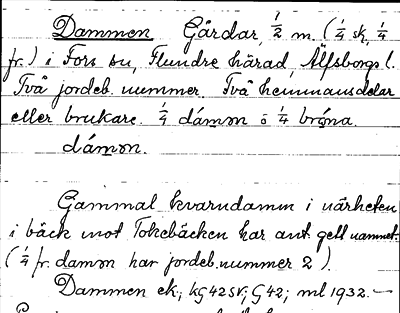 Dammen Gårdar, 1/2 m. (1/4 sk, 1/4
fr.) i Fors sn, Flundre härad, Älfsborgs l.
Två jordeb. nummer. Två hemmansdelar
eller brukare. 1/4 dámɔn ɔ 1/4
dámɔn.
Gammal kvarndamm i närheten
i bäck mot Tokebäcken har ant. gett namnet.
(1/4 fr. damɔn har jordeb. nummer 2).
Dammen ek; kG42SV; G42; ml 1932. —